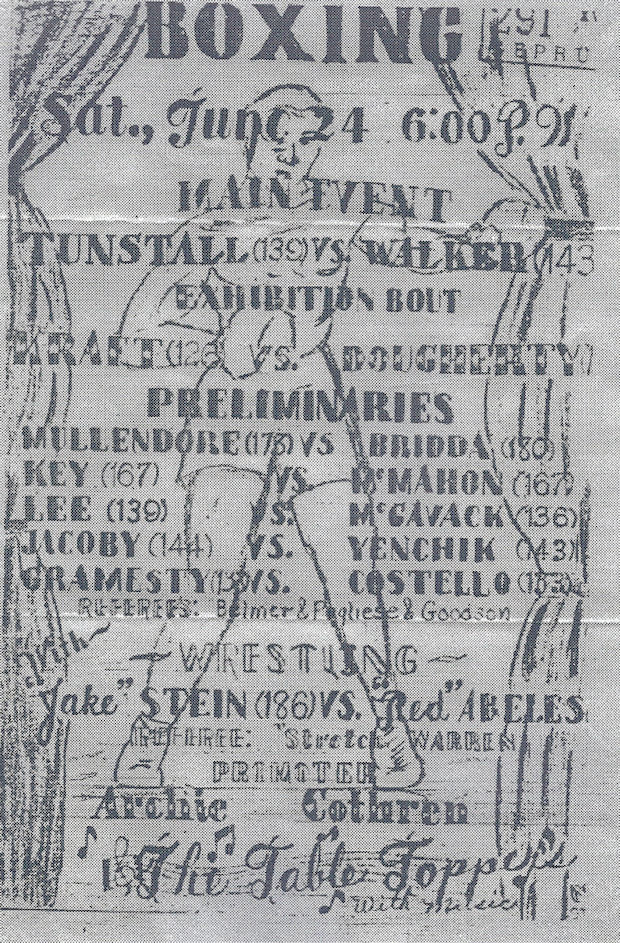 BOXING
291
Sat., June 24 6:00 P.M.
MAIN EVENT
TUNSTALL (139) VS. WALKER (143
EXHIBITION BOUT
KRAFT (126 VS. DOUGHERTY
PRELIMINARIES
MULLENDORE (173) VS BRIDDA (180)
KEY (167) VS. McMAHON (167)
LEE (139) VS. McGAVACK (136)
JACOBY (144) VS. YENCHIK (143)
GRAMESTY VS. COSTELLO
REFEREES: Belmer & Pugliese & Goodson
With
WRESTLING
"Jake" STEIN (186) VS. "Red" ABELES
REFEREE: "Stretch" WARREN
PROMOTER
Archie Cothren
The Table Toppers
With music